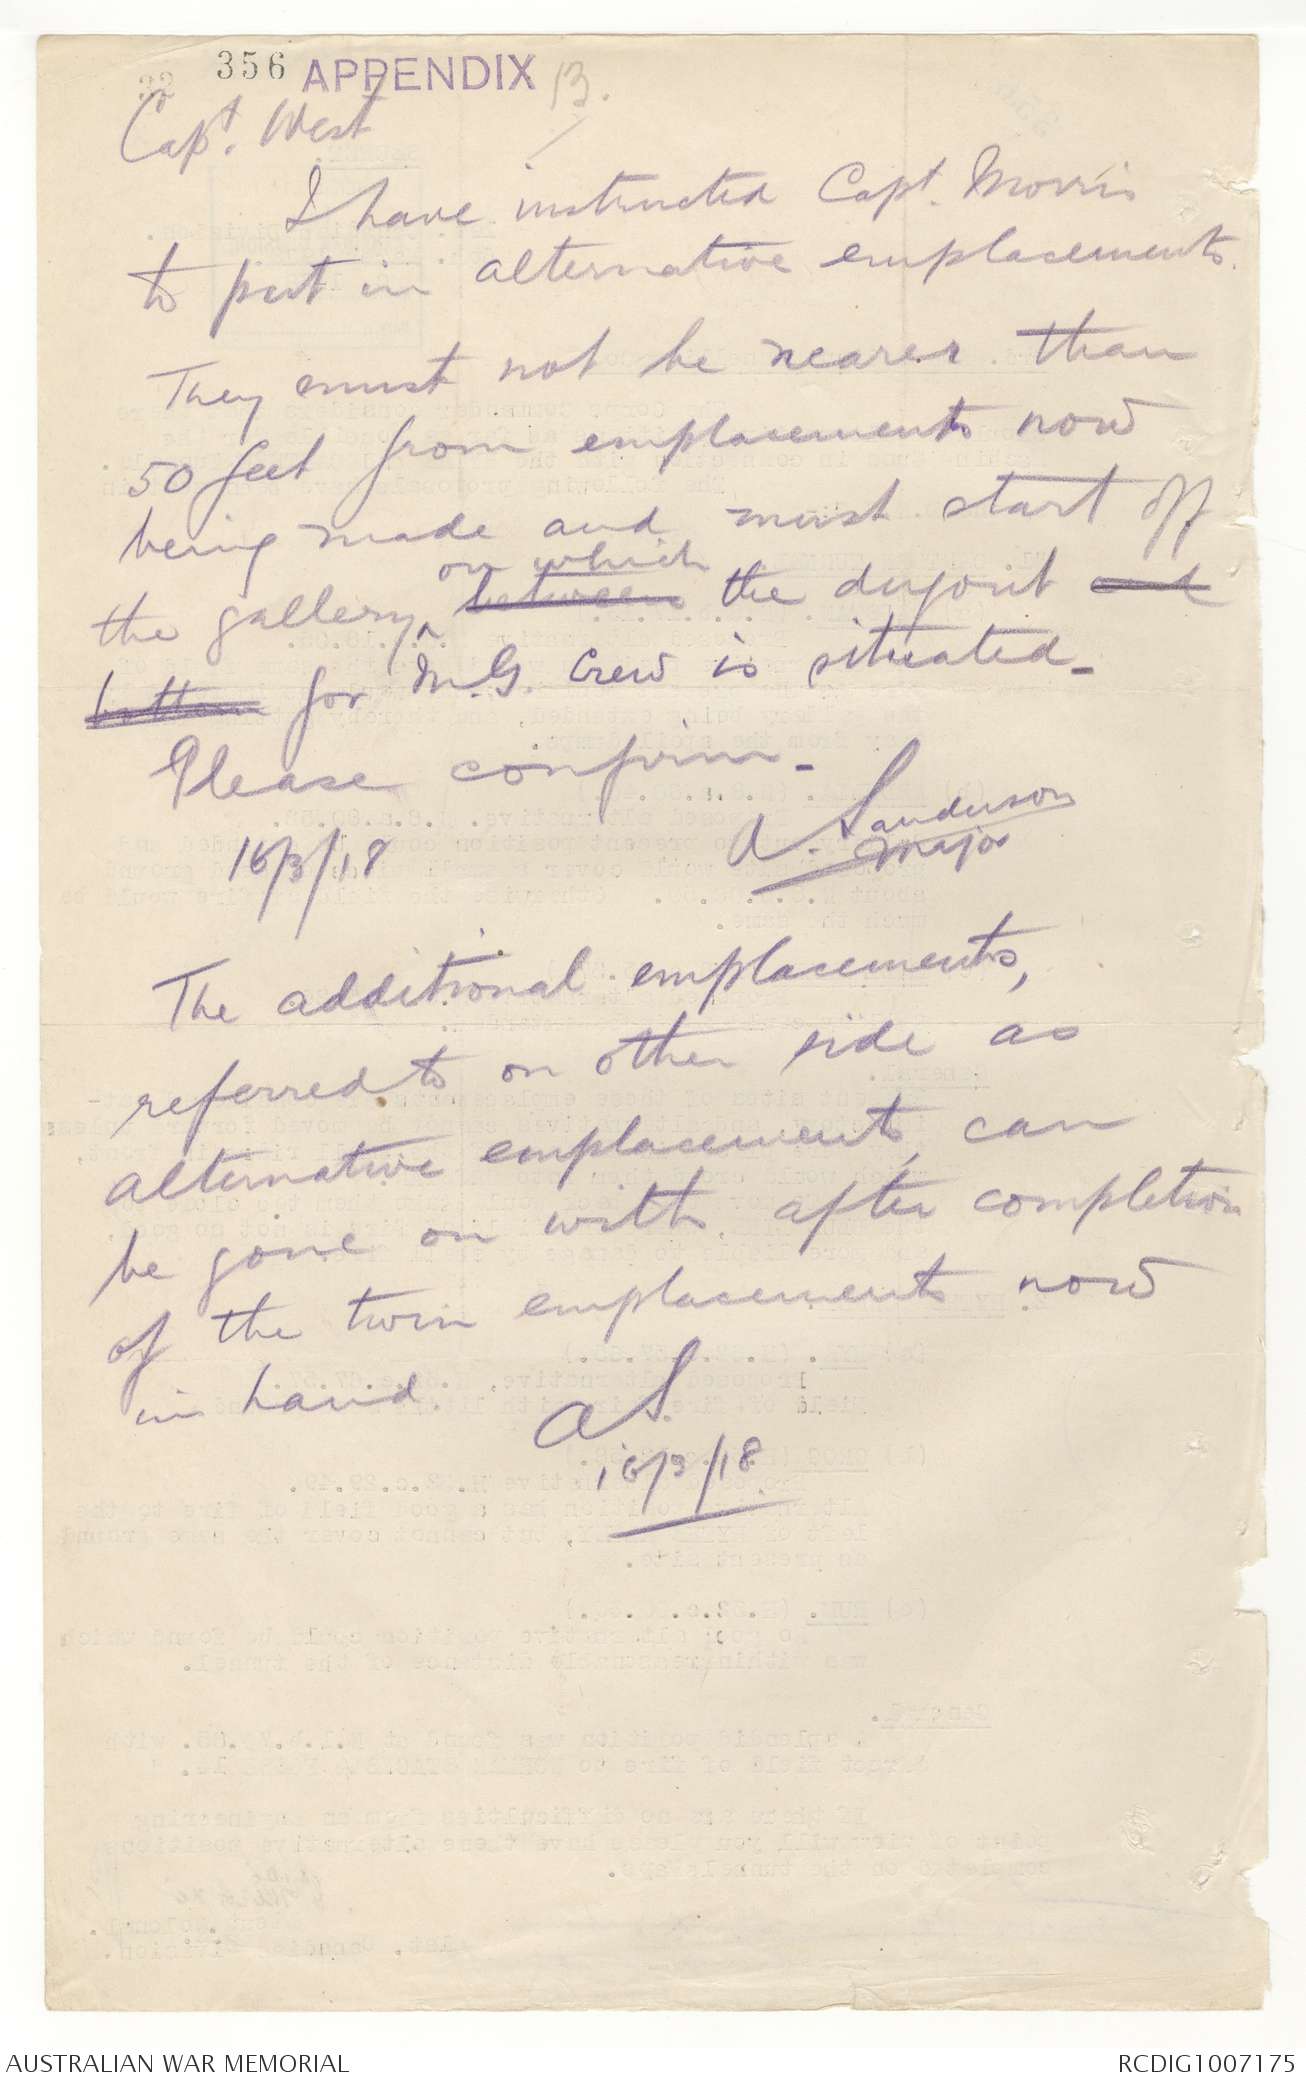 356 APPENDIX 13.
Capt. West
I have instructed Capt. Morris
to put in alternative emplacements.
They must not be nearer than
50 feet from emplacements now
being made and must start off
on which
the gallery ^ between the dugout and
bottom for M.G. Crew is situated -
Please confirm -
A. Sanderson
Major
16/3/18
The additional emplacements,
referred to on other side as
alternative emplacements, can
be gone on with, after completion
of the twin emplacements now
in hand.
AS.
16/3/18
AUSTRALIAN WAR MEMORIAL
RCDIG1007175